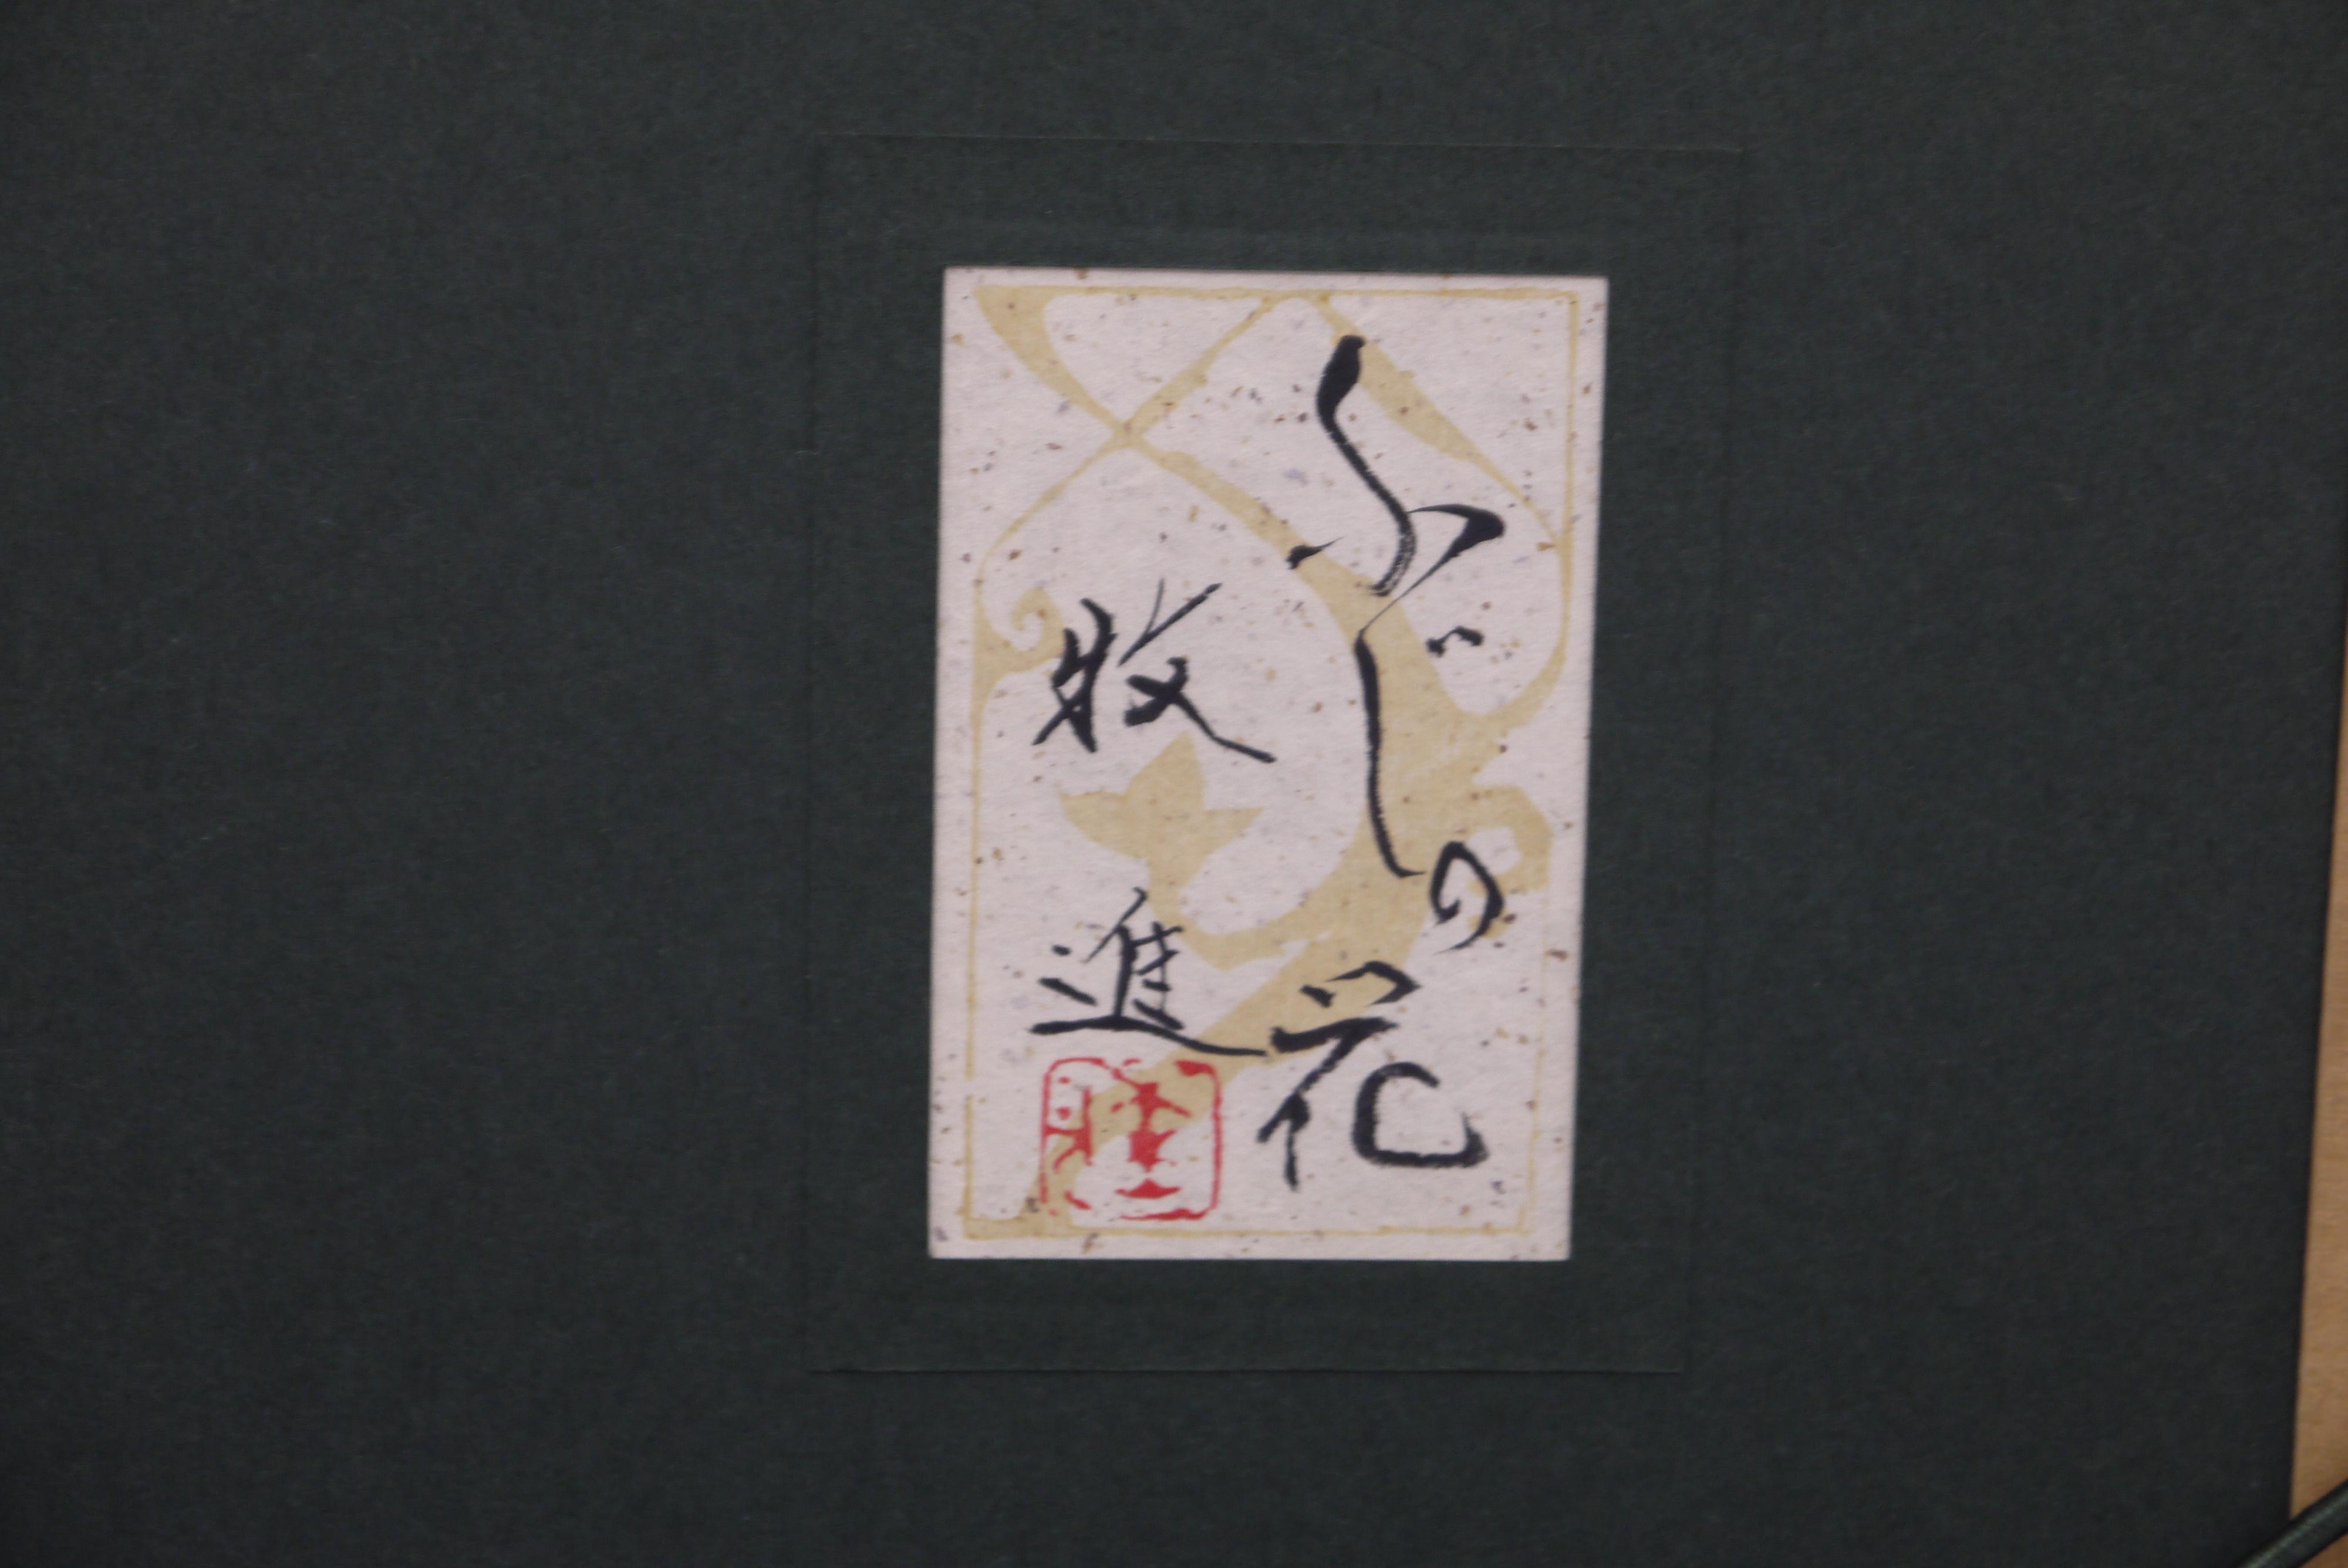 ふじの花
牧進